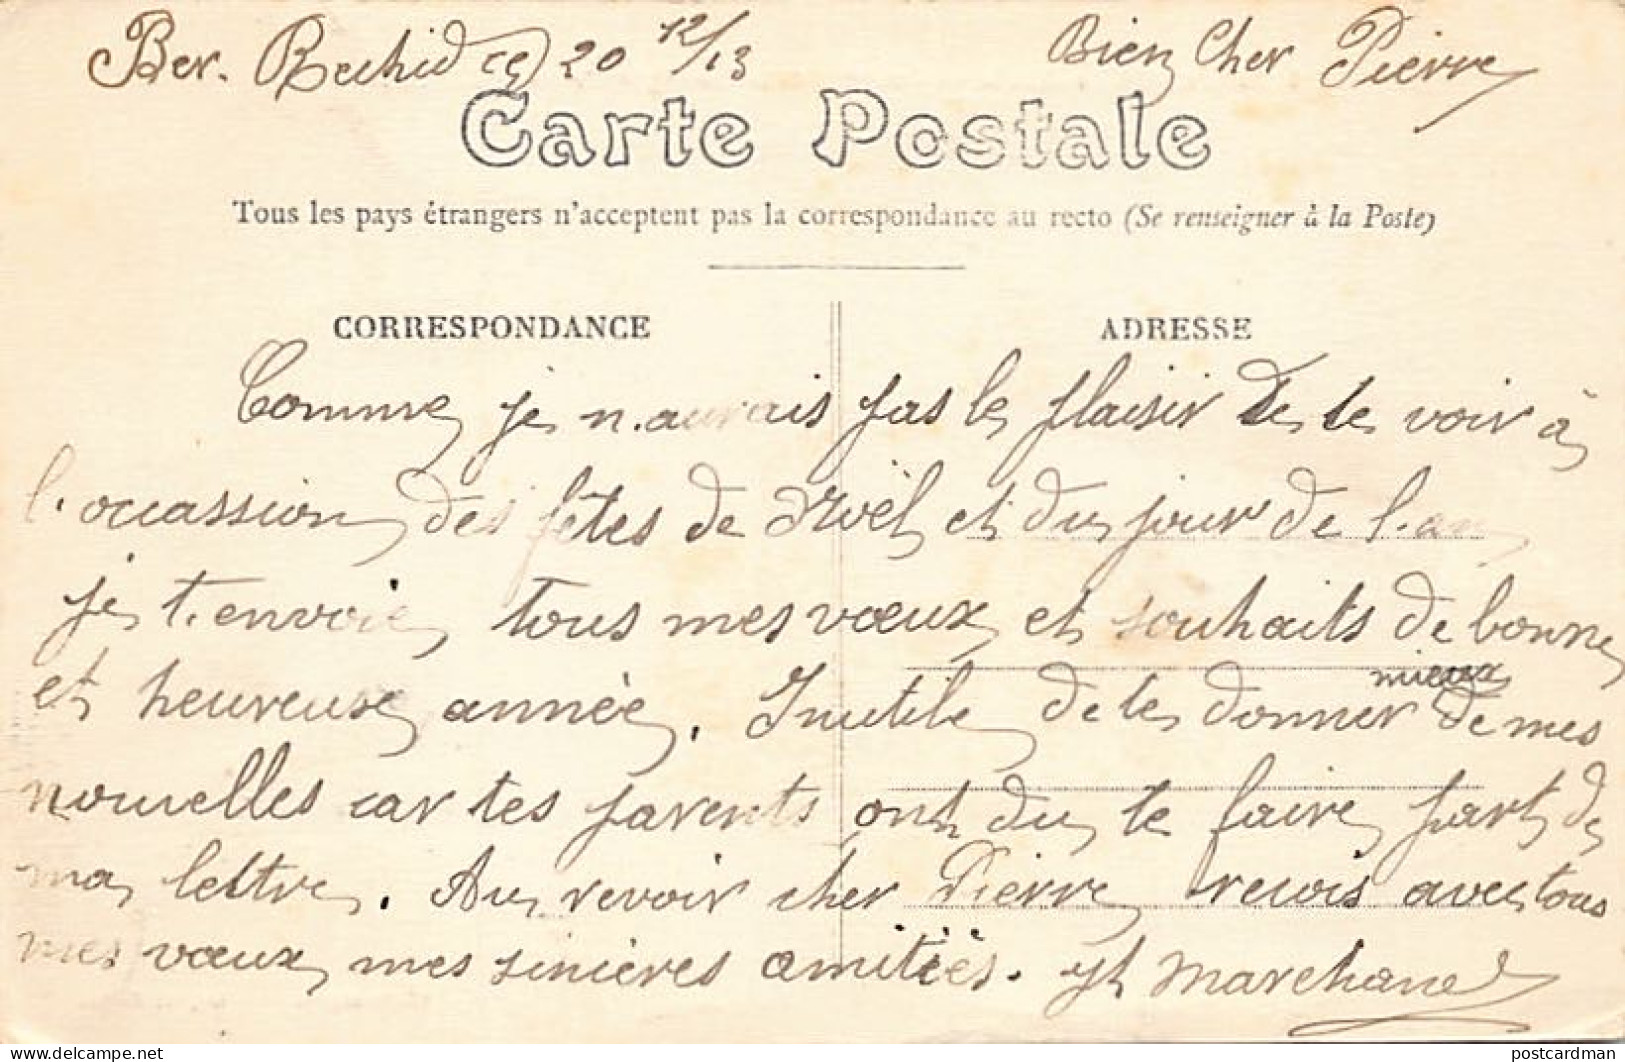 Ber. Rechid le 20 12/13 Bien Cher Pierre
Carte Postale
Tous les pays étrangers n'acceptent pas la correspondance au recto (Se renseigner à la Poste)
CORRESPONDANCE ADRESSE
Comme je n.aurais pas le plaisir de te voir à
l.occassion des fêtes de Noël et du jour de l.an
je t.envoie tous mes vœux et souhaits de bonne
et heureuse année. Inutile de te donner mieux de mes
nouvelles car tes parents ont du te faire part de
ma lettre. Au revoir cher Pierre reçois avec tous
mes vœux mes sincères amitiés. Marchand
www.delcampe.net postcardman